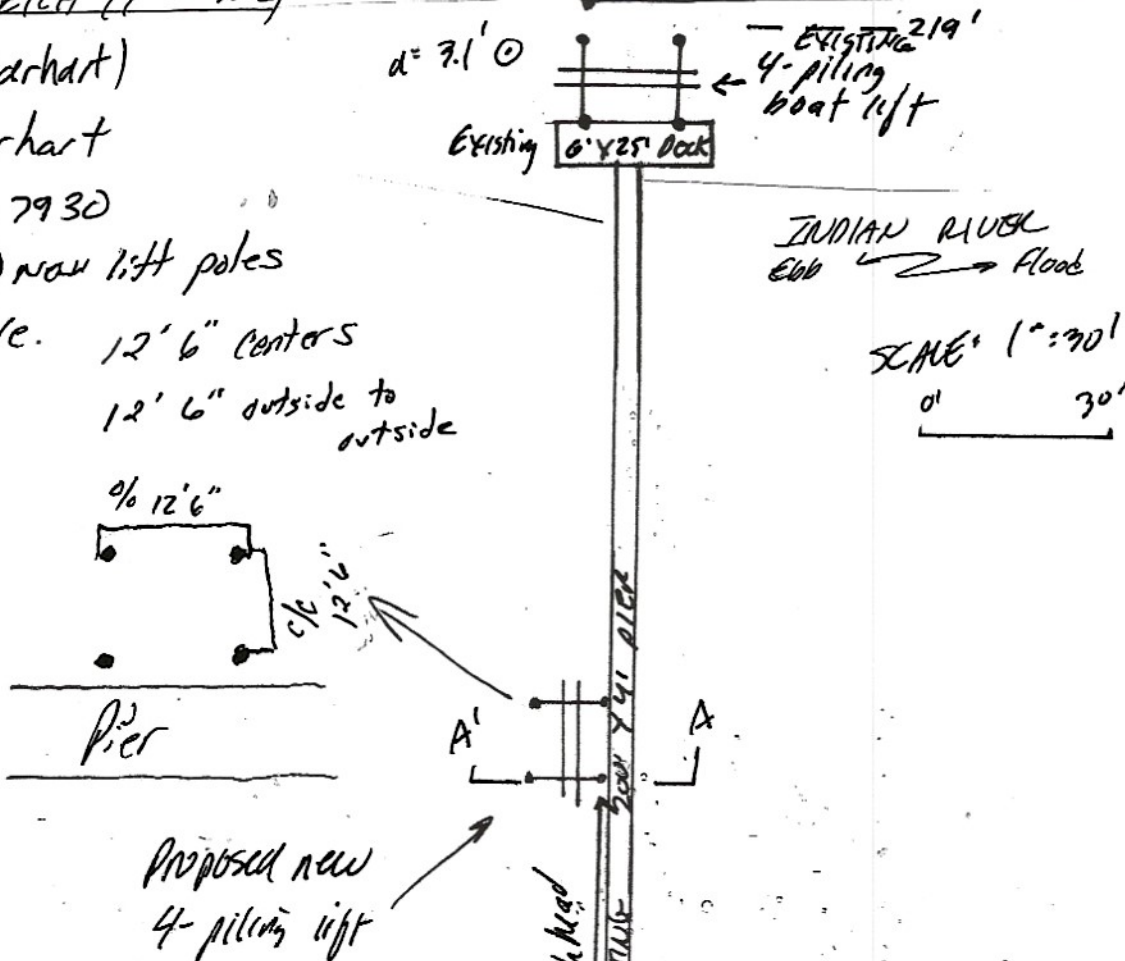 arhart)
rhart
7930
new lift poles
12'6" centers
12' 6" outside to
outside
d= 3.1'
EXISTING 219'
4-piling
boat lift
Existing 6' X 25' Dock
INDIAN RIVER
Ebb Flood
SCALE: 1":30'
0' 30'
% 12'6"
c/c
12'6"
Pier
X 4' PIER
A' A
Proposed new
4-piling lift